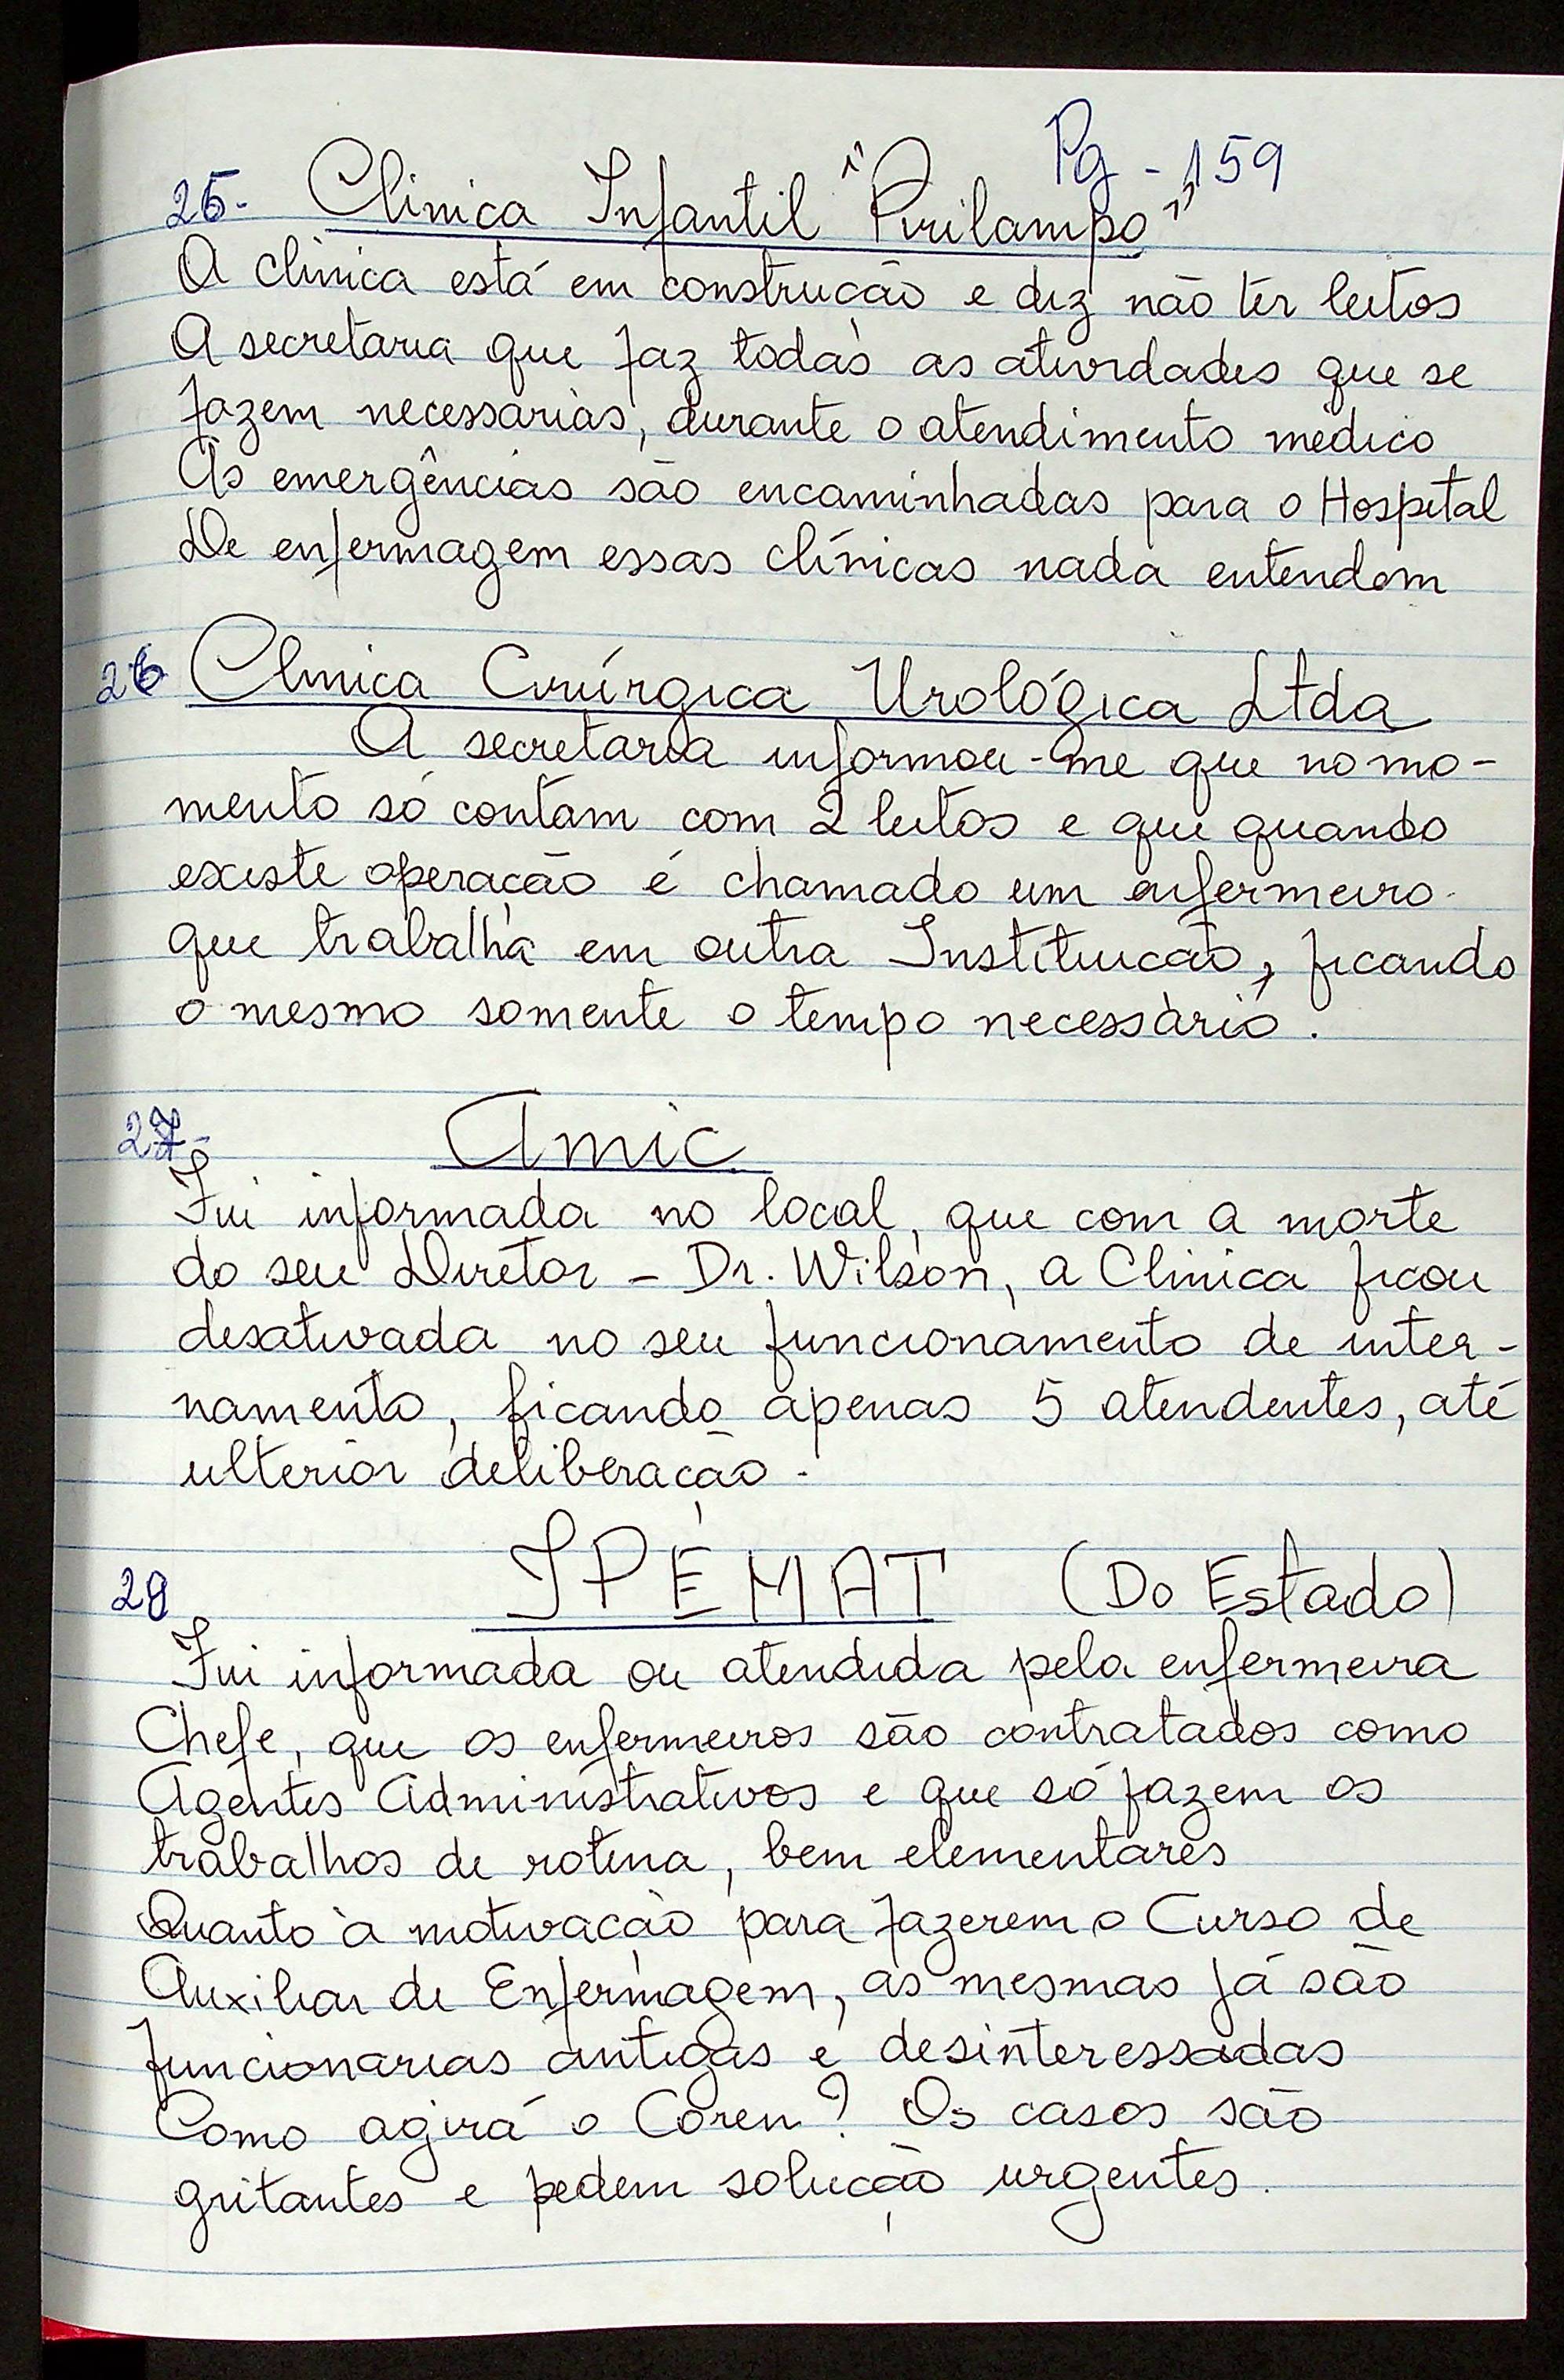 Pg - 159
25- Clinica Infantil "Pirilampo"
A clinica está em construção e diz não ter leitos
A secretaria que faz todas as atividades que se
fazem necessarias, durante o atendimento médico
As emergências são encaminhadas para o Hospital
De enfermagem essas clínicas nada entendem
26 Clinica Cirúrgica Urológica Ltda
A secretaria informou-me que no mo-
mento só contam com 2 leitos e que quando
existe operação é chamado um enfermeiro
que trabalha em outra Instituição, ficando
o mesmo somente o tempo necessário.
27- Amic
Fui informada no local, que com a morte
do seu Diretor - Dr. Wilson, a Clinica ficou
desativada no seu funcionamento de inter-
namento, ficando apenas 5 atendentes, até
ulterior deliberação.
28 IPEMAT (Do Estado)
Fui informada ou atendida pela enfermeira
Chefe, que os enfermeiros são contratados como
Agentes Administrativos e que só fazem os
trabalhos de rotina, bem elementares
Quanto à motivação para fazerem o Curso de
Auxiliar de Enfermagem, as mesmas já são
funcionarias antigas e desinteressadas
Como agirá o Coren? Os casos são
gritantes e pedem solução urgentes.